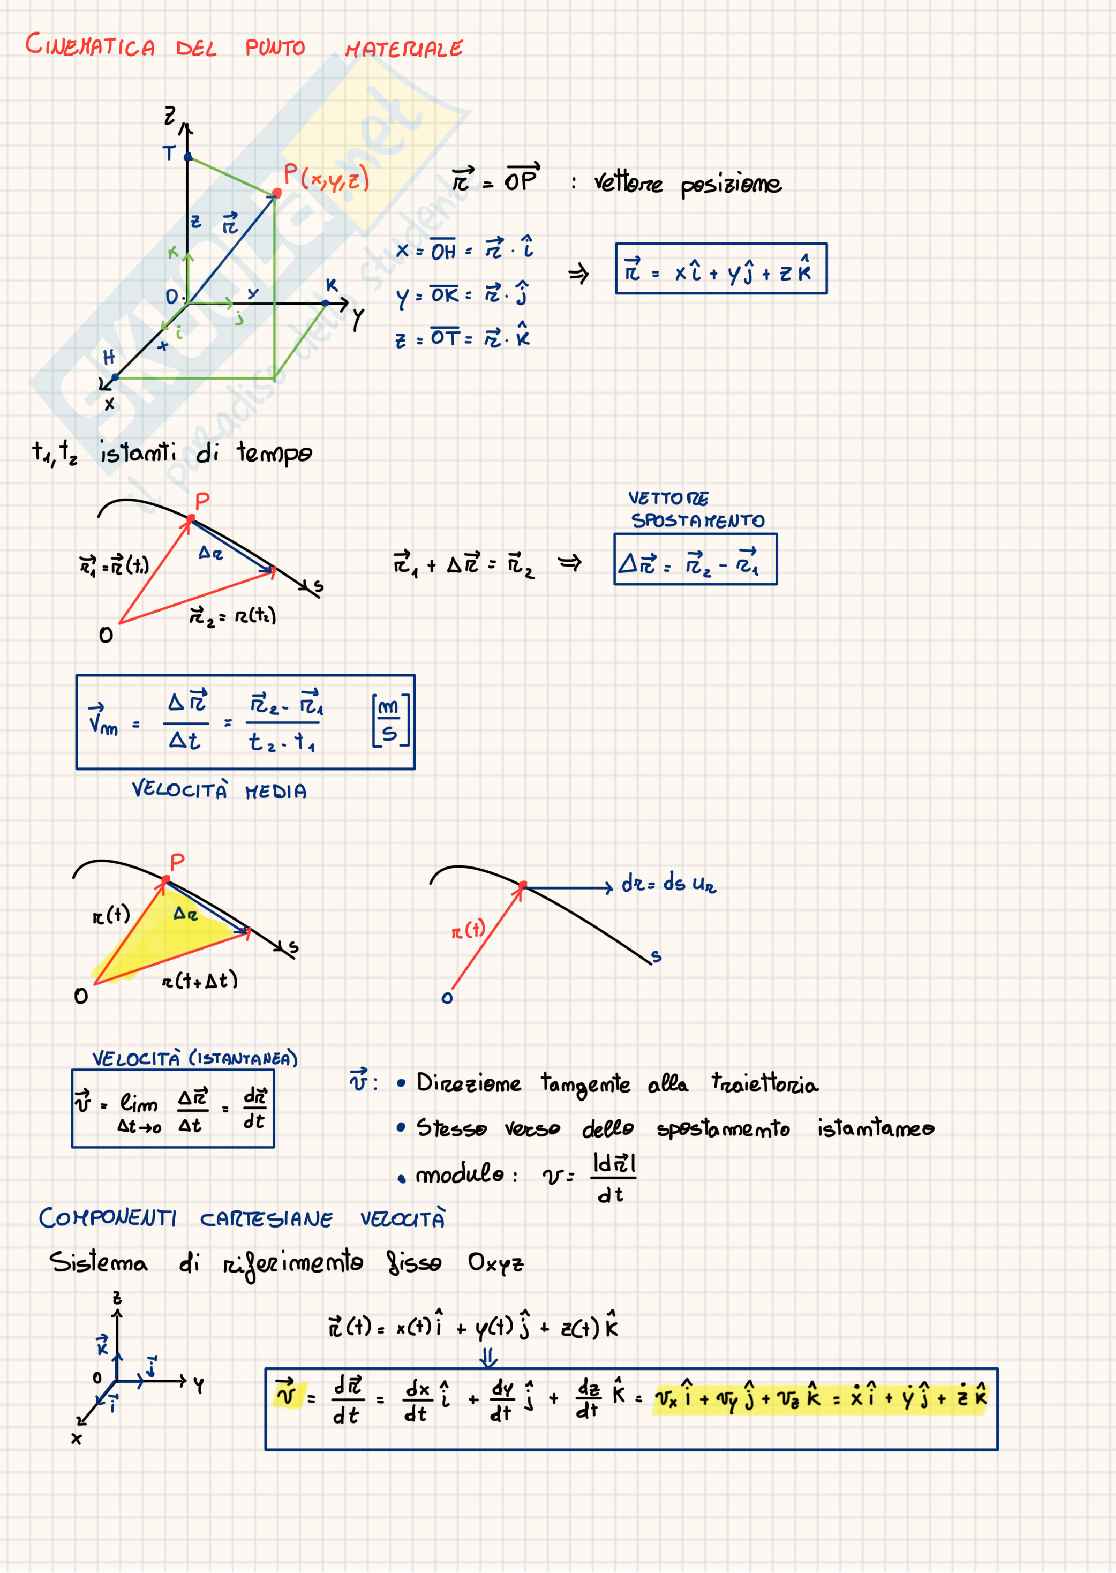 CINEMATICA DEL PUNTO MATERIALE
SKUOLA.net
il paradiso dello studente
Z
T
P(x,y,z)
z
r⃗
K
O
j
y
K
Y
i
x
H
X
r⃗ = OP⃗ : vettore posizione
x = OH = r⃗ · î
y = OK = r⃗ · ĵ
z = OT = r⃗ · k̂
⇒ r⃗ = x î + y ĵ + z k̂
t₁, t₂ istanti di tempo
P
r⃗₁ = r⃗(t₁)
Δr
s
r⃗₂ = r(t₂)
O
r⃗₁ + Δr⃗ = r⃗₂ ⇒
VETTORE
SPOSTAMENTO
Δr⃗ = r⃗₂ - r⃗₁
v⃗m = Δr⃗/Δt = (r⃗₂ - r⃗₁)/(t₂ - t₁) [m/s]
VELOCITÀ MEDIA
P
r(t)
Δr
s
r(t+Δt)
O
dr = ds ur
r(t)
s
O
VELOCITÀ (ISTANTANEA)
v⃗ = lim Δt→0 Δr⃗/Δt = dr⃗/dt
v⃗ : • Direzione tangente alla traiettoria
• Stesso verso dello spostamento istantaneo
• modulo : v = |dr⃗|/dt
COMPONENTI CARTESIANE VELOCITÀ
Sistema di riferimento fisso Oxyz
z
k⃗
j⃗
O
y
i⃗
x
r⃗(t) = x(t) î + y(t) ĵ + z(t) k̂
⇓
v⃗ = dr⃗/dt = dx/dt î + dy/dt ĵ + dz/dt k̂ = vx î + vy ĵ + vz k̂ = ẋ î + ẏ ĵ + ż k̂